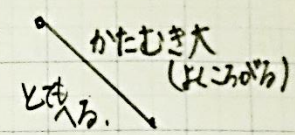 かたむき大
(よくころがる)
とても
へる.